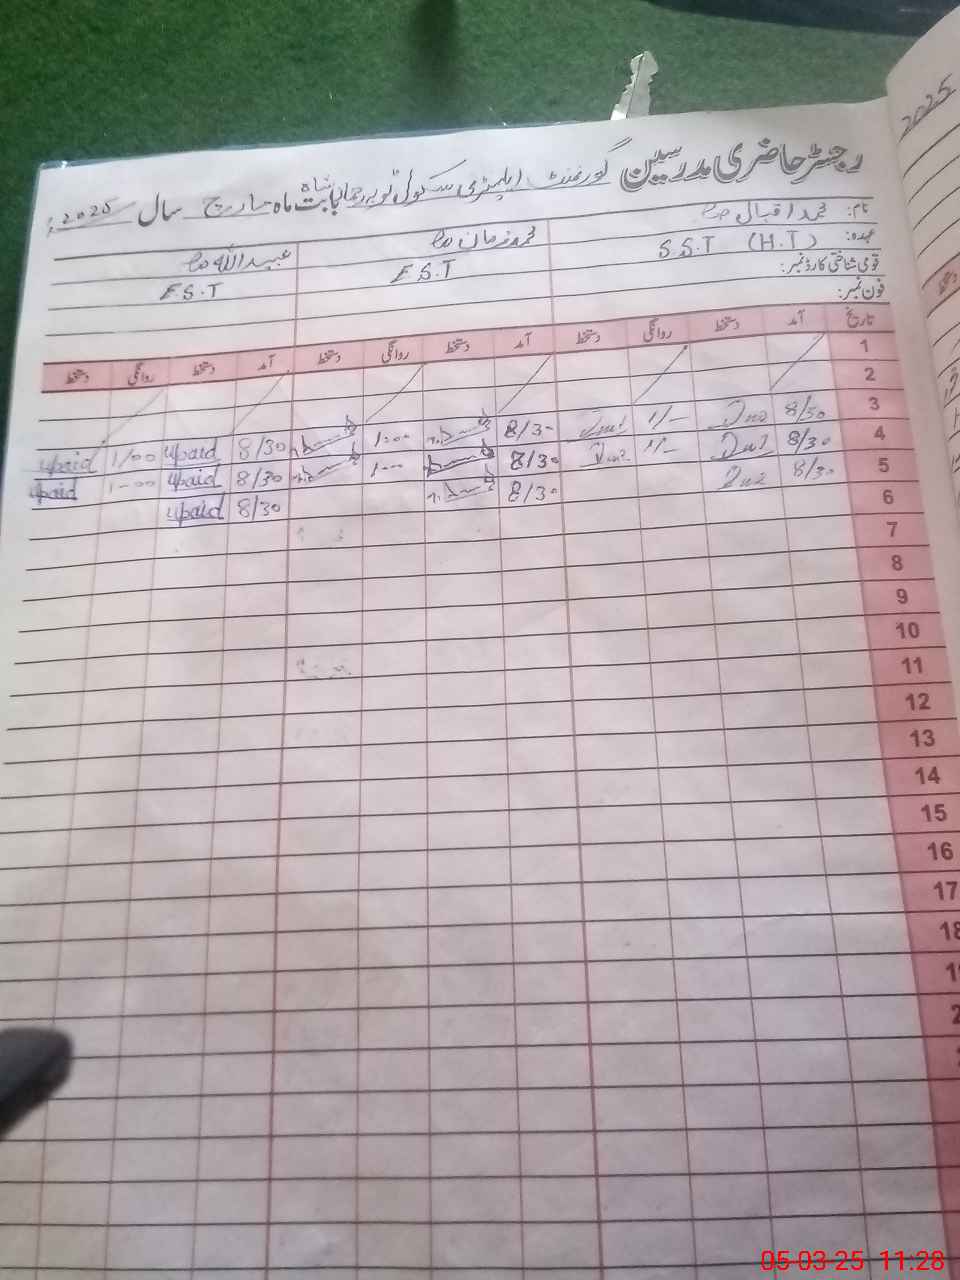 2025
رجسٹر حاضری مدرسین گورنمنٹ ایلیمنٹری سکول ٹوبہ رحمان شاہ بابت ماہ مارچ سال 2025
نام: محمد اقبال صاحب محمد زمان صاحب عبید اللہ صاحب
عہدہ: S.S.T (H.T) E.S.T E.S.T
قومی شناختی کارڈ نمبر:
فون نمبر:
تاریخ آمد دستخط روانگی دستخط آمد دستخط روانگی دستخط آمد دستخط روانگی دستخط
1
2
3 8/30 1/- 8/30 1:00 8/30 upaid 1/00 upaid
4 8/30 1/- 8/30 1:00 8/30 upaid 1:00 upaid
5 8/30 8/30 8/30 upaid
6
7
8
9
10
11
12
13
14
15
16
17
18
05 03 25 11:28